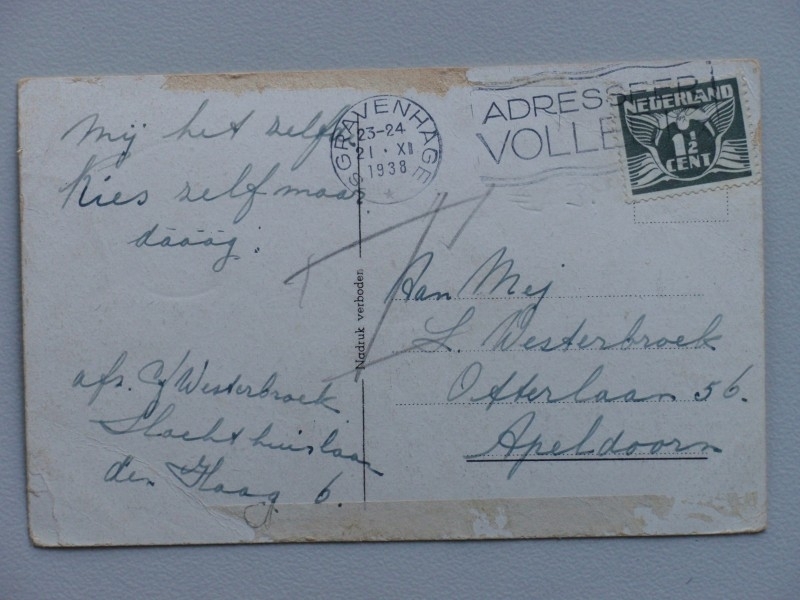 Mij het zelf.
Kies zelf maar
dááág.
afs. C/Westerbroek
Slachthuislaan
den Haag 6.
'S GRAVENHAGE
23-24
21 · XII
1938
ADRESSEER
VOLLE
NEDERLAND
1½
CENT
Nadruk verboden
Aan Mej
L. Westerbroek
Otterlaan 56.
Apeldoorn